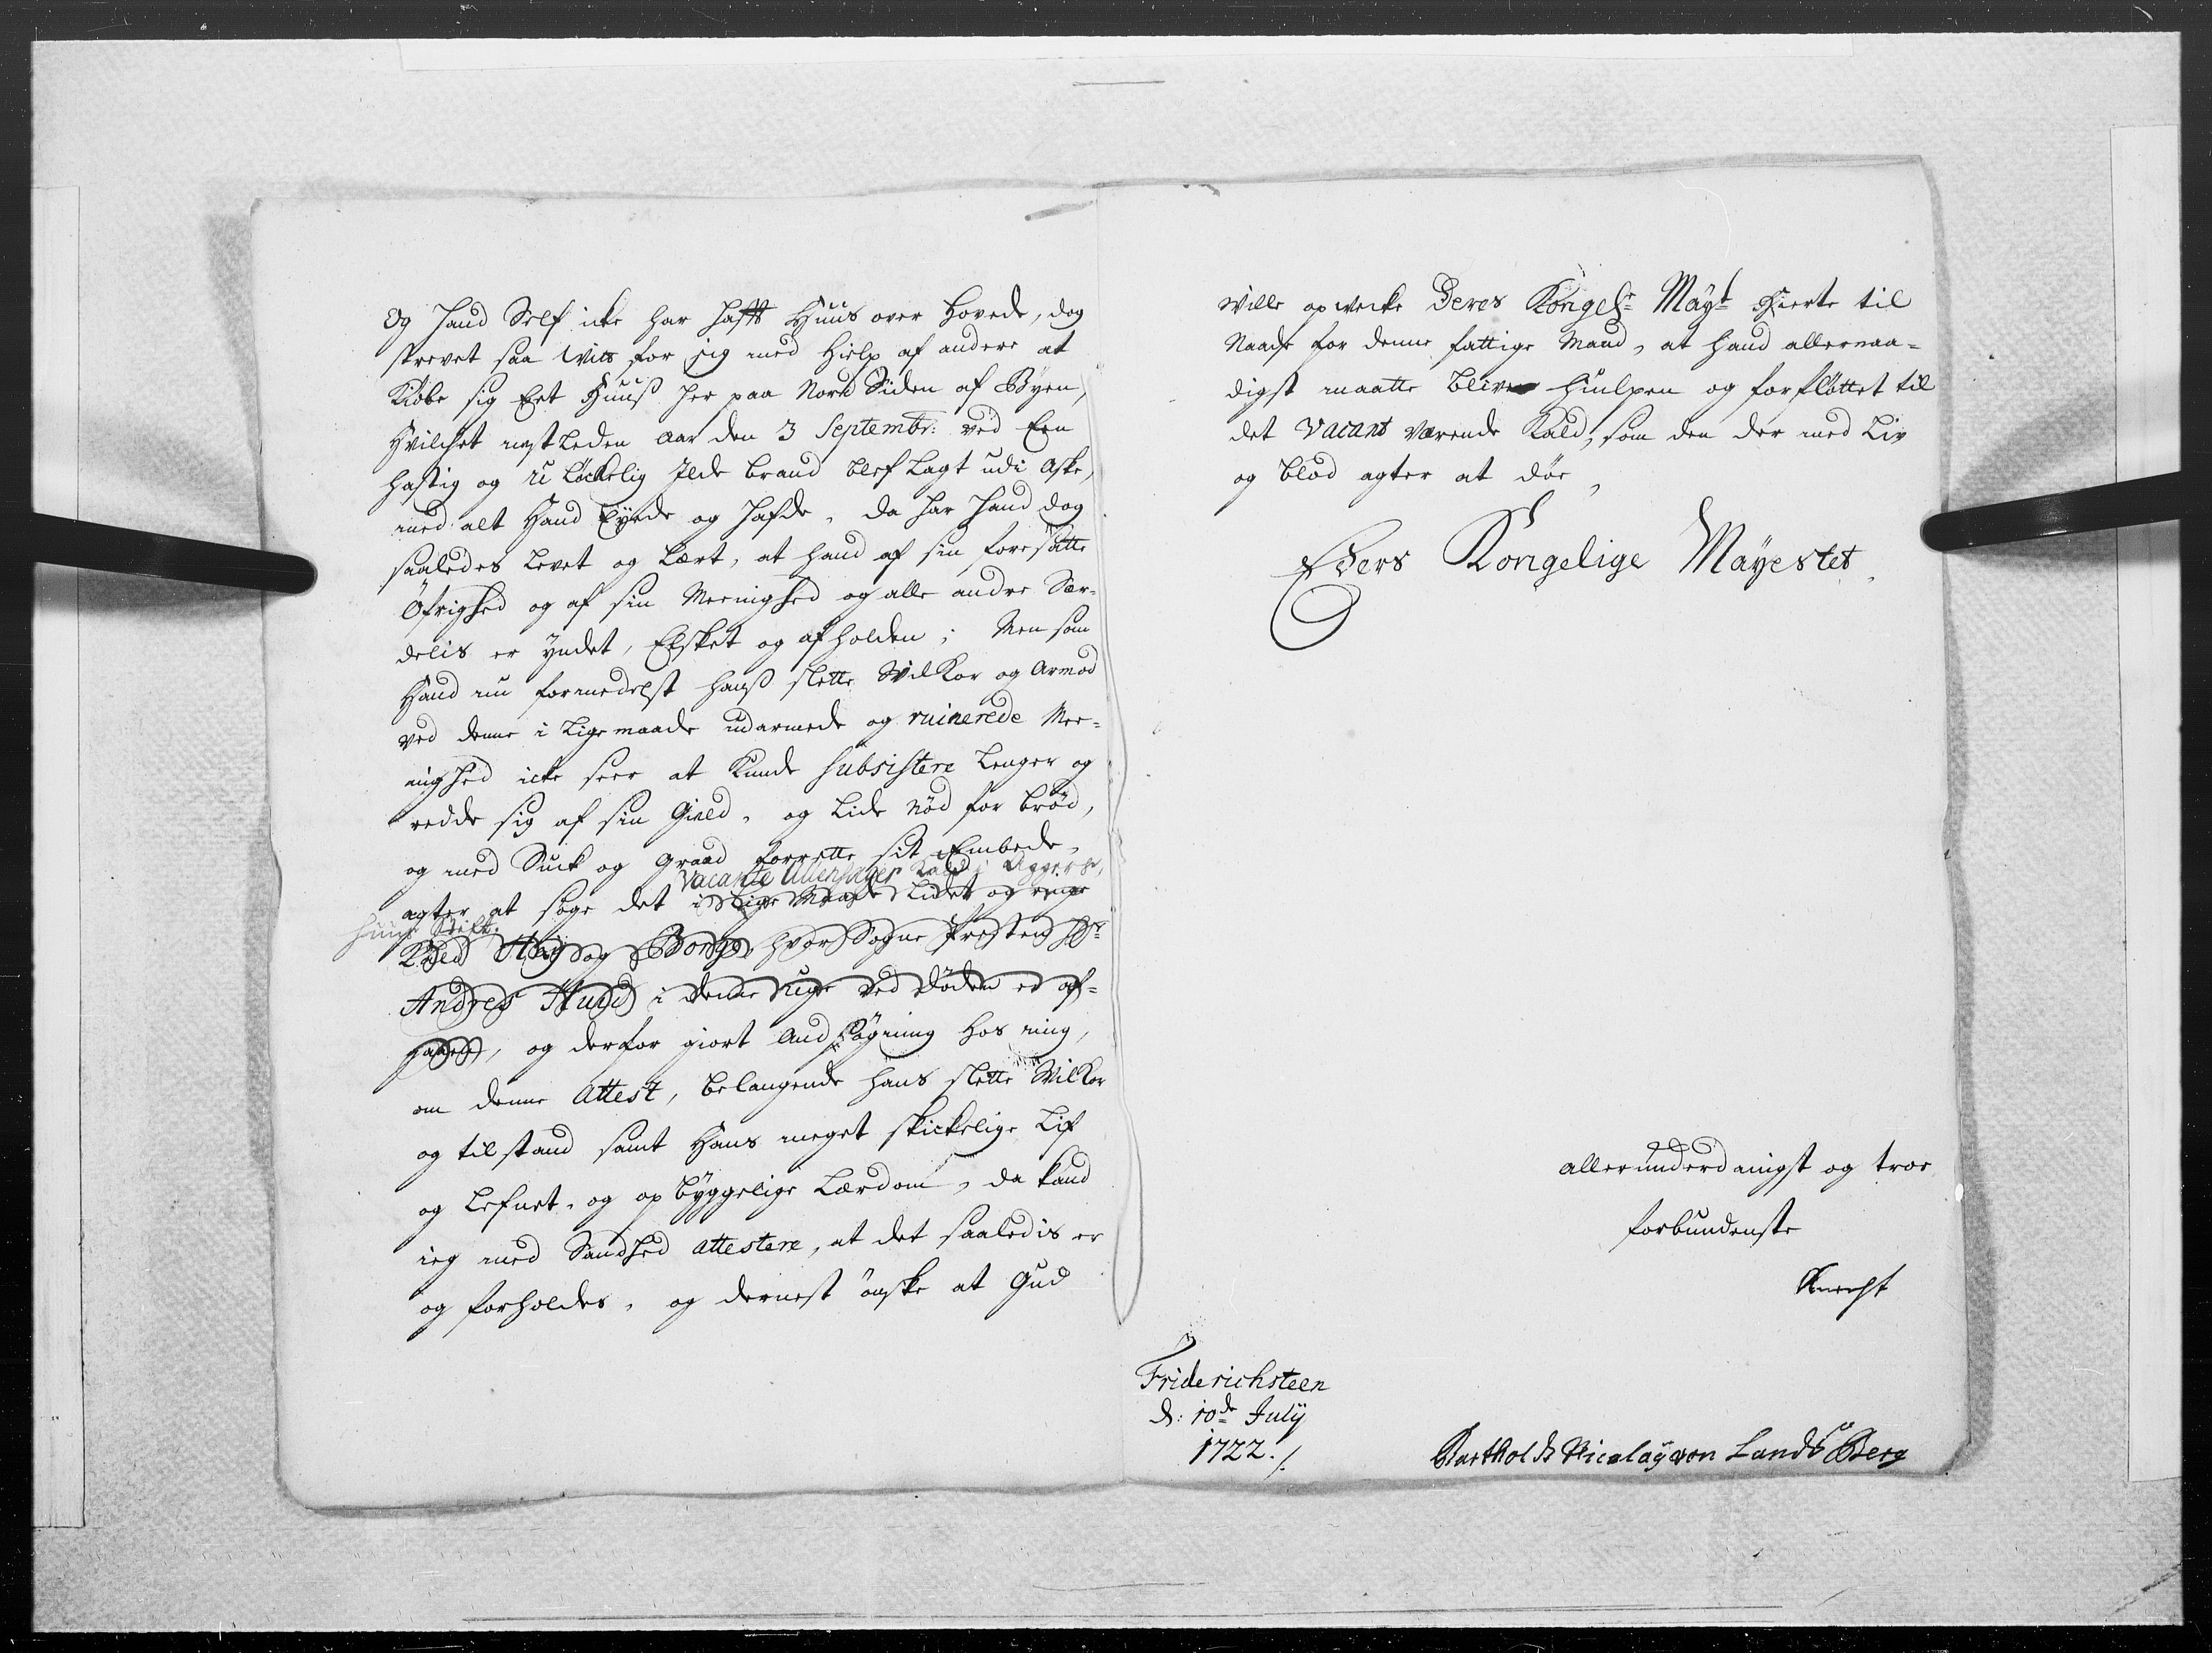 Og Hand Self icke har hafft Huus over Hovede, dog
strævet saa Vit for sig med Hielp af andere at
Kiöbe sig Eet Huuss her paa Nord Siden af Byen,
Hvilchet nestleden Aar den 3 Septembr: ved Een
hastig og u löckelig Ilde brand blef lagt udi Aske,
med alt Hand Eyede og hafde, da har hand dog
saaledes levet og lært, at hand af sin foresatte
Öfrighed og af sin Meenighed og alle andre Sær-
delis er yndet, Elsket og afholden; Men som
Hand nu formedelst hanss slette Vilkor og Armod
ved denne i lige maade udarmede og ruinerede Mee-
nighed icke seer at kunde subsistere lenger og
redde sig af sin Gield, og lide Nöd for bröd,
og med Suck og Graad forrette sit Embede,
vacante Ullensager Kald i Aggers-
agter at söge det i lige Maade lidet og ringe
huus Stift.
Kald Haj og Borge, hvor Sogne Præsten Hr
Andres Hund i denne uge ved döden er af-
gaaed, og derfor giort Andsögning hos mig,
om denne Attest, belangende hans slette Vilkor
og tilstand samt Hans meget skickelige Lif
og Lefnet, og opbyggelige Lærdom, da kand
ieg med Sandhed attestere, at det saaledis er
og forholdes, og dernest önske at Gud
Ville opvecke Deres Kongel: Mayt Hierte til
Naade for denne fattige Mand, at hand allernaa-
digst maatte blive hiulpen og forflöttet til
det vacant værende Kald, som den der med Liv
og blod agter at döe,
Eders Kongelige Mayestet
allerunderdanigst og troe
forbundenste
Knecht
Friderichsteen
d: 10de July
1722./.
Barthold Nicolay von Landsberg